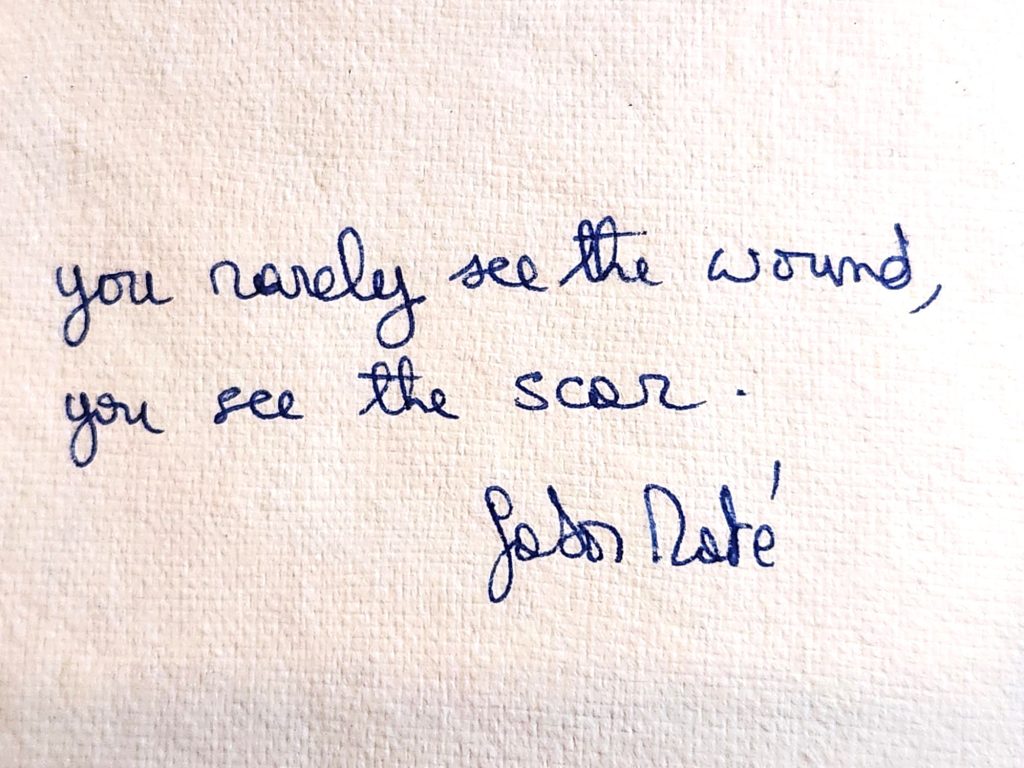 you rarely see the wound,
you see the scar.
Gabor Maté